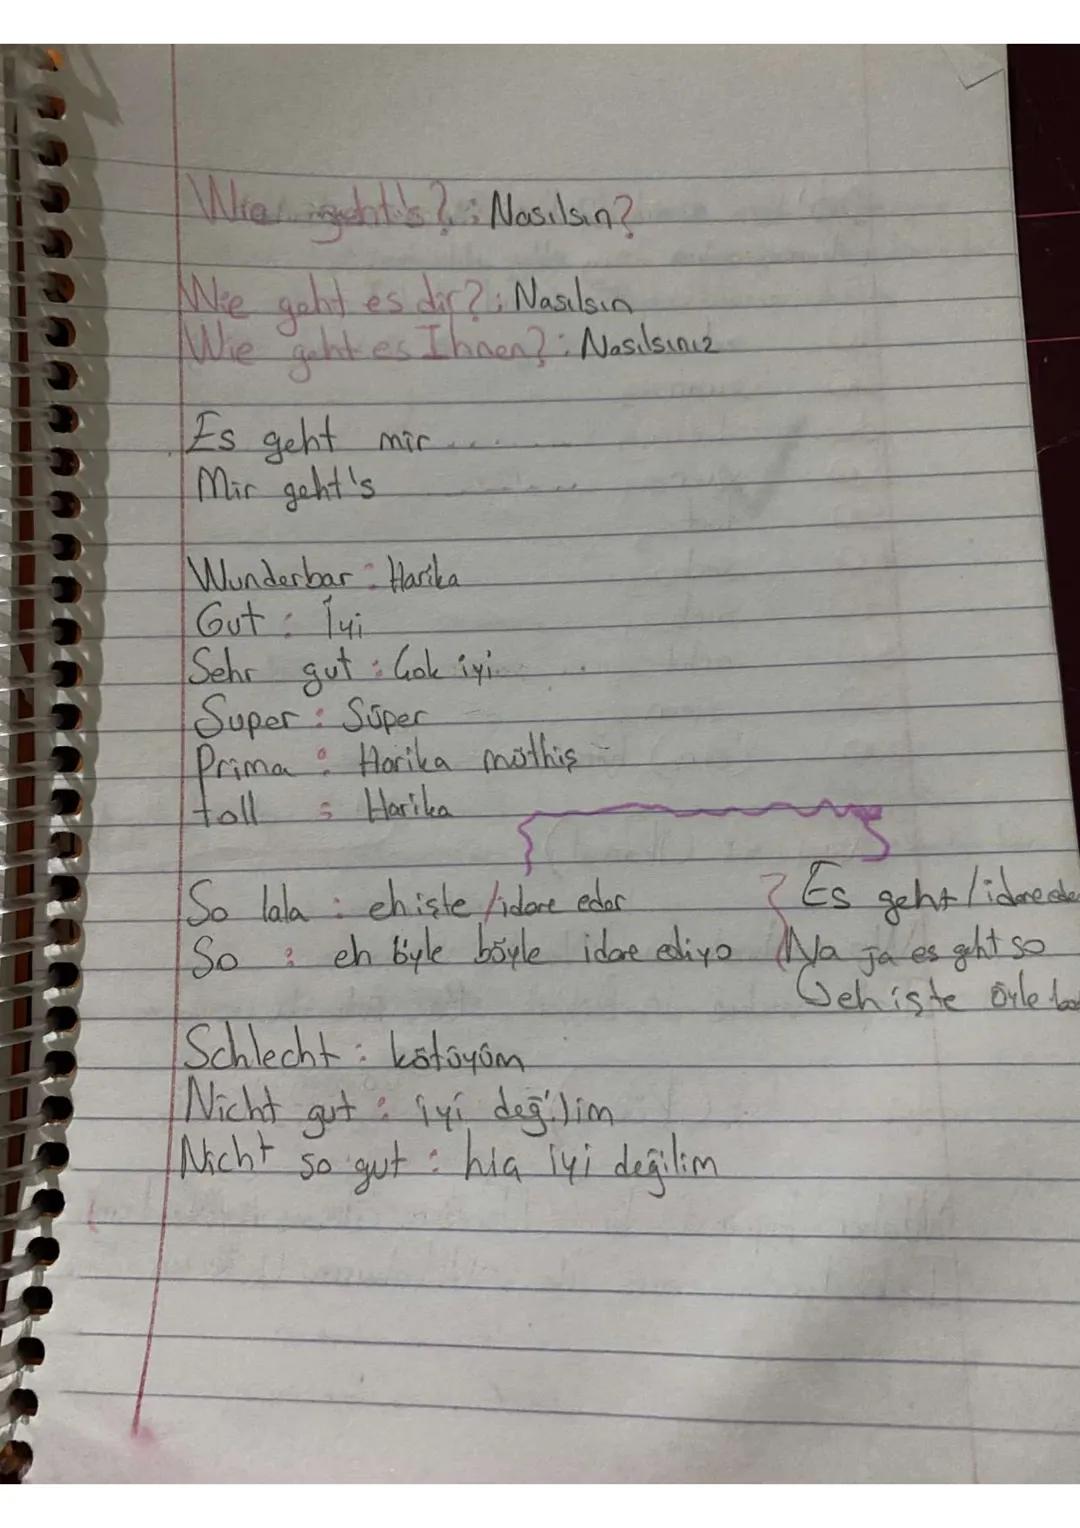 Wie geht's? : Nasılsın?
Wie geht es dir? : Nasılsın
Wie geht es Ihnen? : Nasılsınız
Es geht mir ....
Mir geht's
Wunderbar : Harika
Gut : İyi
Sehr gut : Çok iyi
Super : Süper
Prima : Harika müthiş
toll : Harika
So lala : eh işte / idare eder
Es geht / idare eder
So : eh böyle böyle idare ediyo
Na ja es geht so
eh işte öyle
Schlecht : kötüyüm
Nicht gut : iyi değilim
Nicht so gut : hiç iyi değilim